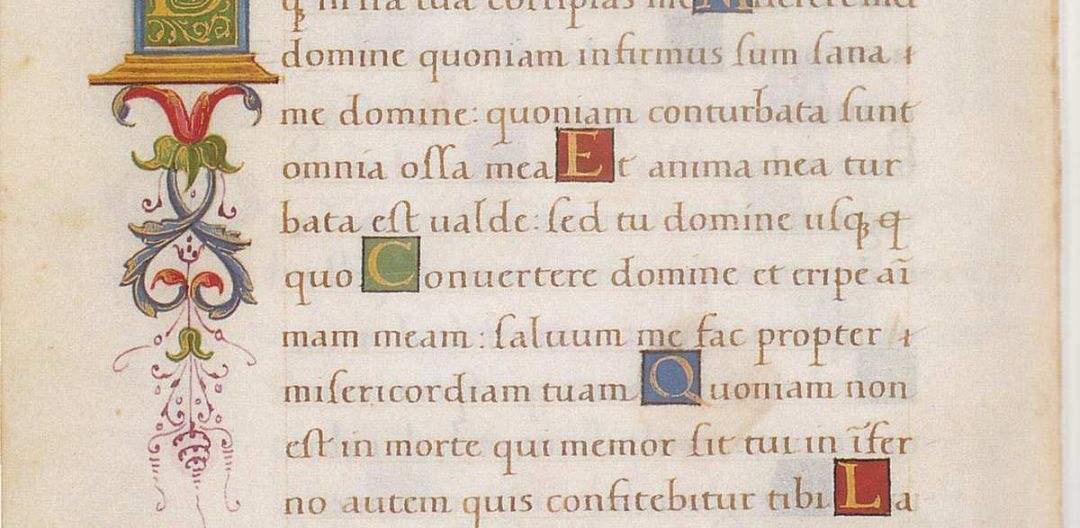 q in ira tua corripias me Miserere mei
domine quoniam infirmus ſum ſana
me domine: quoniam conturbata ſunt
omnia oſſa mea Et anima mea tur
bata eſt ualde: ſed tu domine uſꝗ ꝗ
quo Conuertere domine et eripe aī
mam meam: ſaluum me fac propter
miſericordiam tuam Quoniam non
eſt in morte qui memor ſit tui in īfer
no autem quis confitebitur tibi La